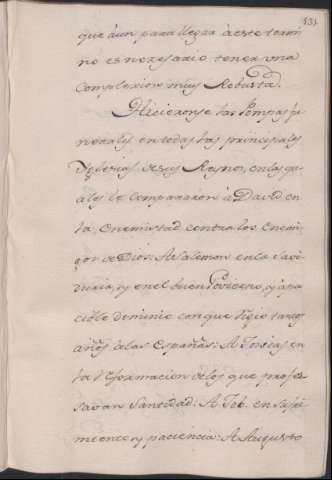 131
que aun para llegar à este termi
no es nezesario tener una
Complexion muy Robusta.
Hizieronse las Pompas fu
nerales en todas las principales
Yglesias de sus Reynos, en las qu
ales le compararon à David en
la Enemistad contra los Enemi
gos de Dios: A Salomon en la Savi
duria, y en el buen Govierno, y apa
cible dominio con que Rigio tantos
años à las Españas: A Josias en
la Reformacion de los que profe
savan Santidad: A Job en su sufri
miento y paciencia: A Augusto